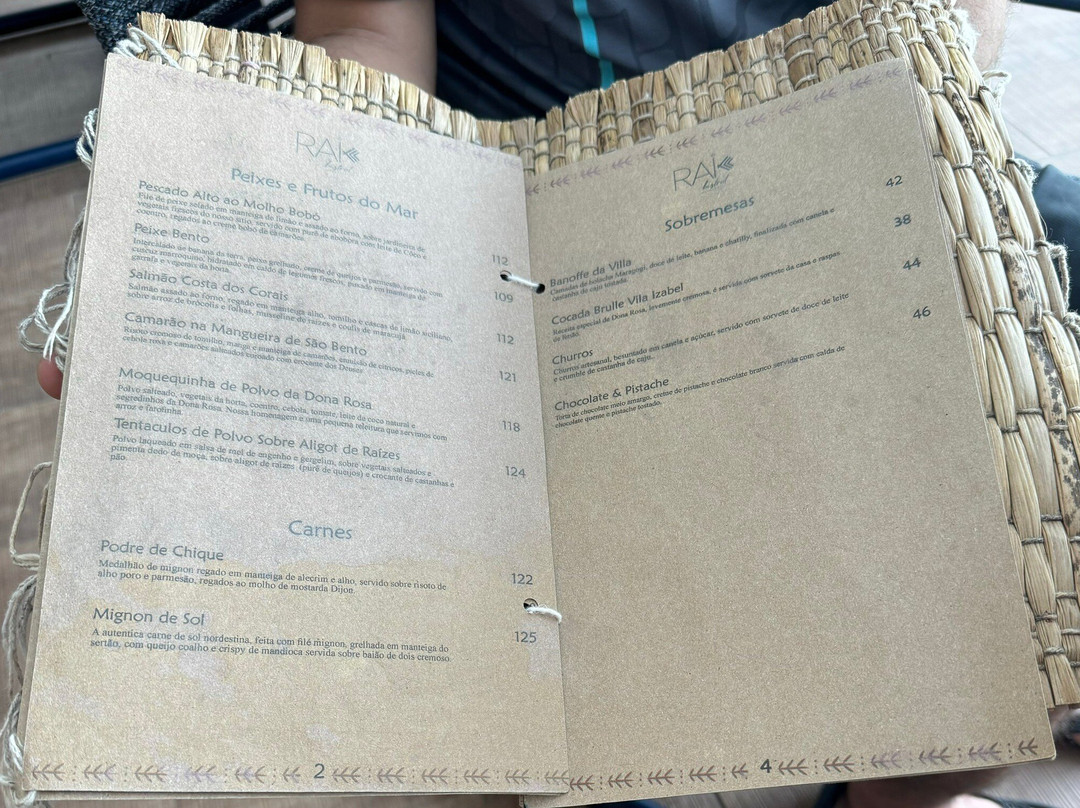 RAK
Bistrot
Peixes e Frutos do Mar
Pescado Alto ao Molho Bobó
Filé de peixe selado em manteiga de limão e assado ao forno, sobre jardineira de
vegetais fígaros do nosso sítio, servido com purê de abóbora com leite de Côco e
coentro, regados ao creme bobó de camarões.
112
Peixe Bento
Intercalado de banana da terra, peixe grelhado, creme de queijos e parmesão, servido com
cuscuz marroquino, hidratado em caldo de legumes frescos, puxado em manteiga de
garrafa e vegetais da horta.
109
Salmão Costa dos Corais
Salmão assado ao forno, regado em manteiga alho, tomilho e cascas de limão siciliano,
sobre arroz de brócolis e folhas, musseline de raízes e coulis de maracujá.
112
Camarão na Mangueira de São Bento
Risoto cremoso de tomilho, manga e manteiga de camarões, emulsão de cítricos, picles de
cebola roxa e camarões salteados coroado com crocante dos Deuses
121
Moquequinha de Polvo da Dona Rosa
Polvo salteado, vegetais da horta, coentro, cebola, tomate, leite da coco natural e
segredinhos da Dona Rosa. Nossa homenagem e uma pequena releitura que servimos com
arroz e farofinha.
118
Tentaculos de Polvo Sobre Aligot de Raízes
Polvo laqueado em salsa de mel de engenho e gergelim, sobre vegetais salteados e
pimenta dedo de moça, sobre aligot de raízes (purê de queijos) e crocante de castanhas e
pão.
124
Carnes
Podre de Chique
Medalhão de mignon regado em manteiga de alecrim e alho, servido sobre risoto de
alho poro e parmesão, regados ao molho de mostarda Dijon
122
Mignon de Sol
A autentica carne de sol nordestina, feita com filé mignon, grelhada em manteiga do
sertão, com queijo coalho e crispy de mandioca servida sobre baião de dois cremoso
125
2
RAK
Bistrot
Sobremesas
Banoffe da Villa
Camadas de bolacha Maragogi, doce de leite, banana e chatilly, finalizada com canela e
castanha de caju tostada.
42
Cocada Brulle Vila Izabel
Receita especial de Dona Rosa, levemente cremosa, é servida com sorvete da casa e raspas
de limão.
38
Churros
Churros artesanal, besuntado em canela e açúcar, servido com sorvete de doce de leite
e crumble de castanha de caju.
44
Chocolate & Pistache
Torta de chocolate meio amargo, creme de pistache e chocolate branco servida com calda de
chocolate quente e pistache tostado.
46
4